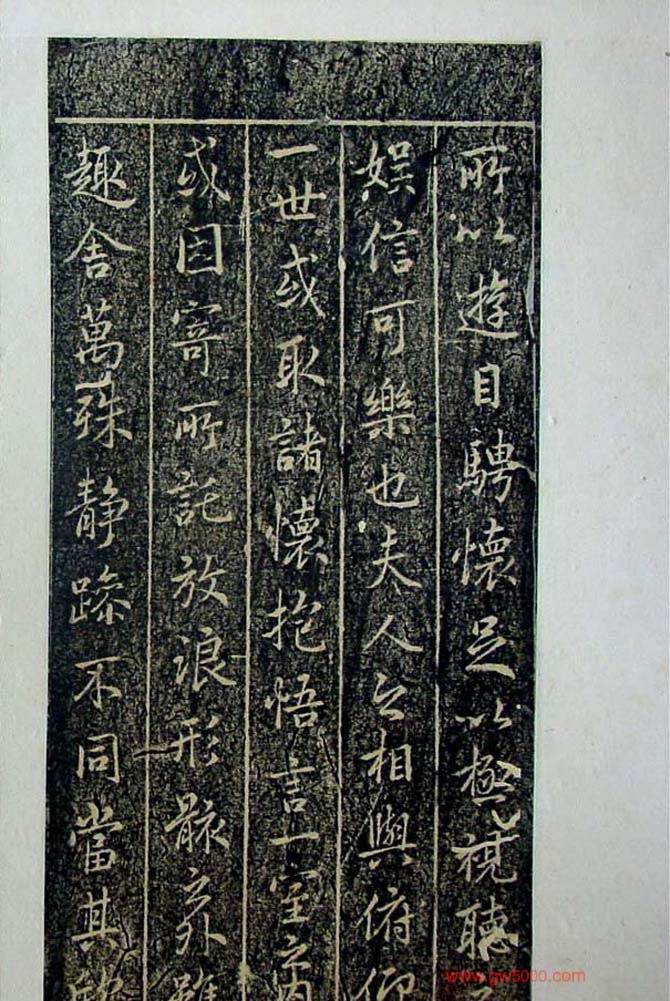 所以遊目騁懷足以極視聽
娛信可樂也夫人之相與俯仰
一世或取諸懷抱悟言一室之內
或因寄所託放浪形骸之外雖
趣舍萬殊静躁不同當其
www.gw5000.com